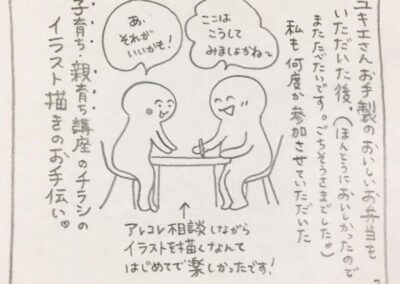 ユキエさんお手製のおいしいお弁当を
いただいた後、(ほんとうにおいしかったので
またたべたいです。ごちそうさまでした♡)
私も何度か参加させていただいた
ここは
こうして
みましょかね〜
あ、
それが
いいかも!
子育ち・親育ち講座のチラシの
イラスト描きのお手伝い♡
アレコレ相談しながら
イラストを描くなんて
はじめてで楽しかったです!